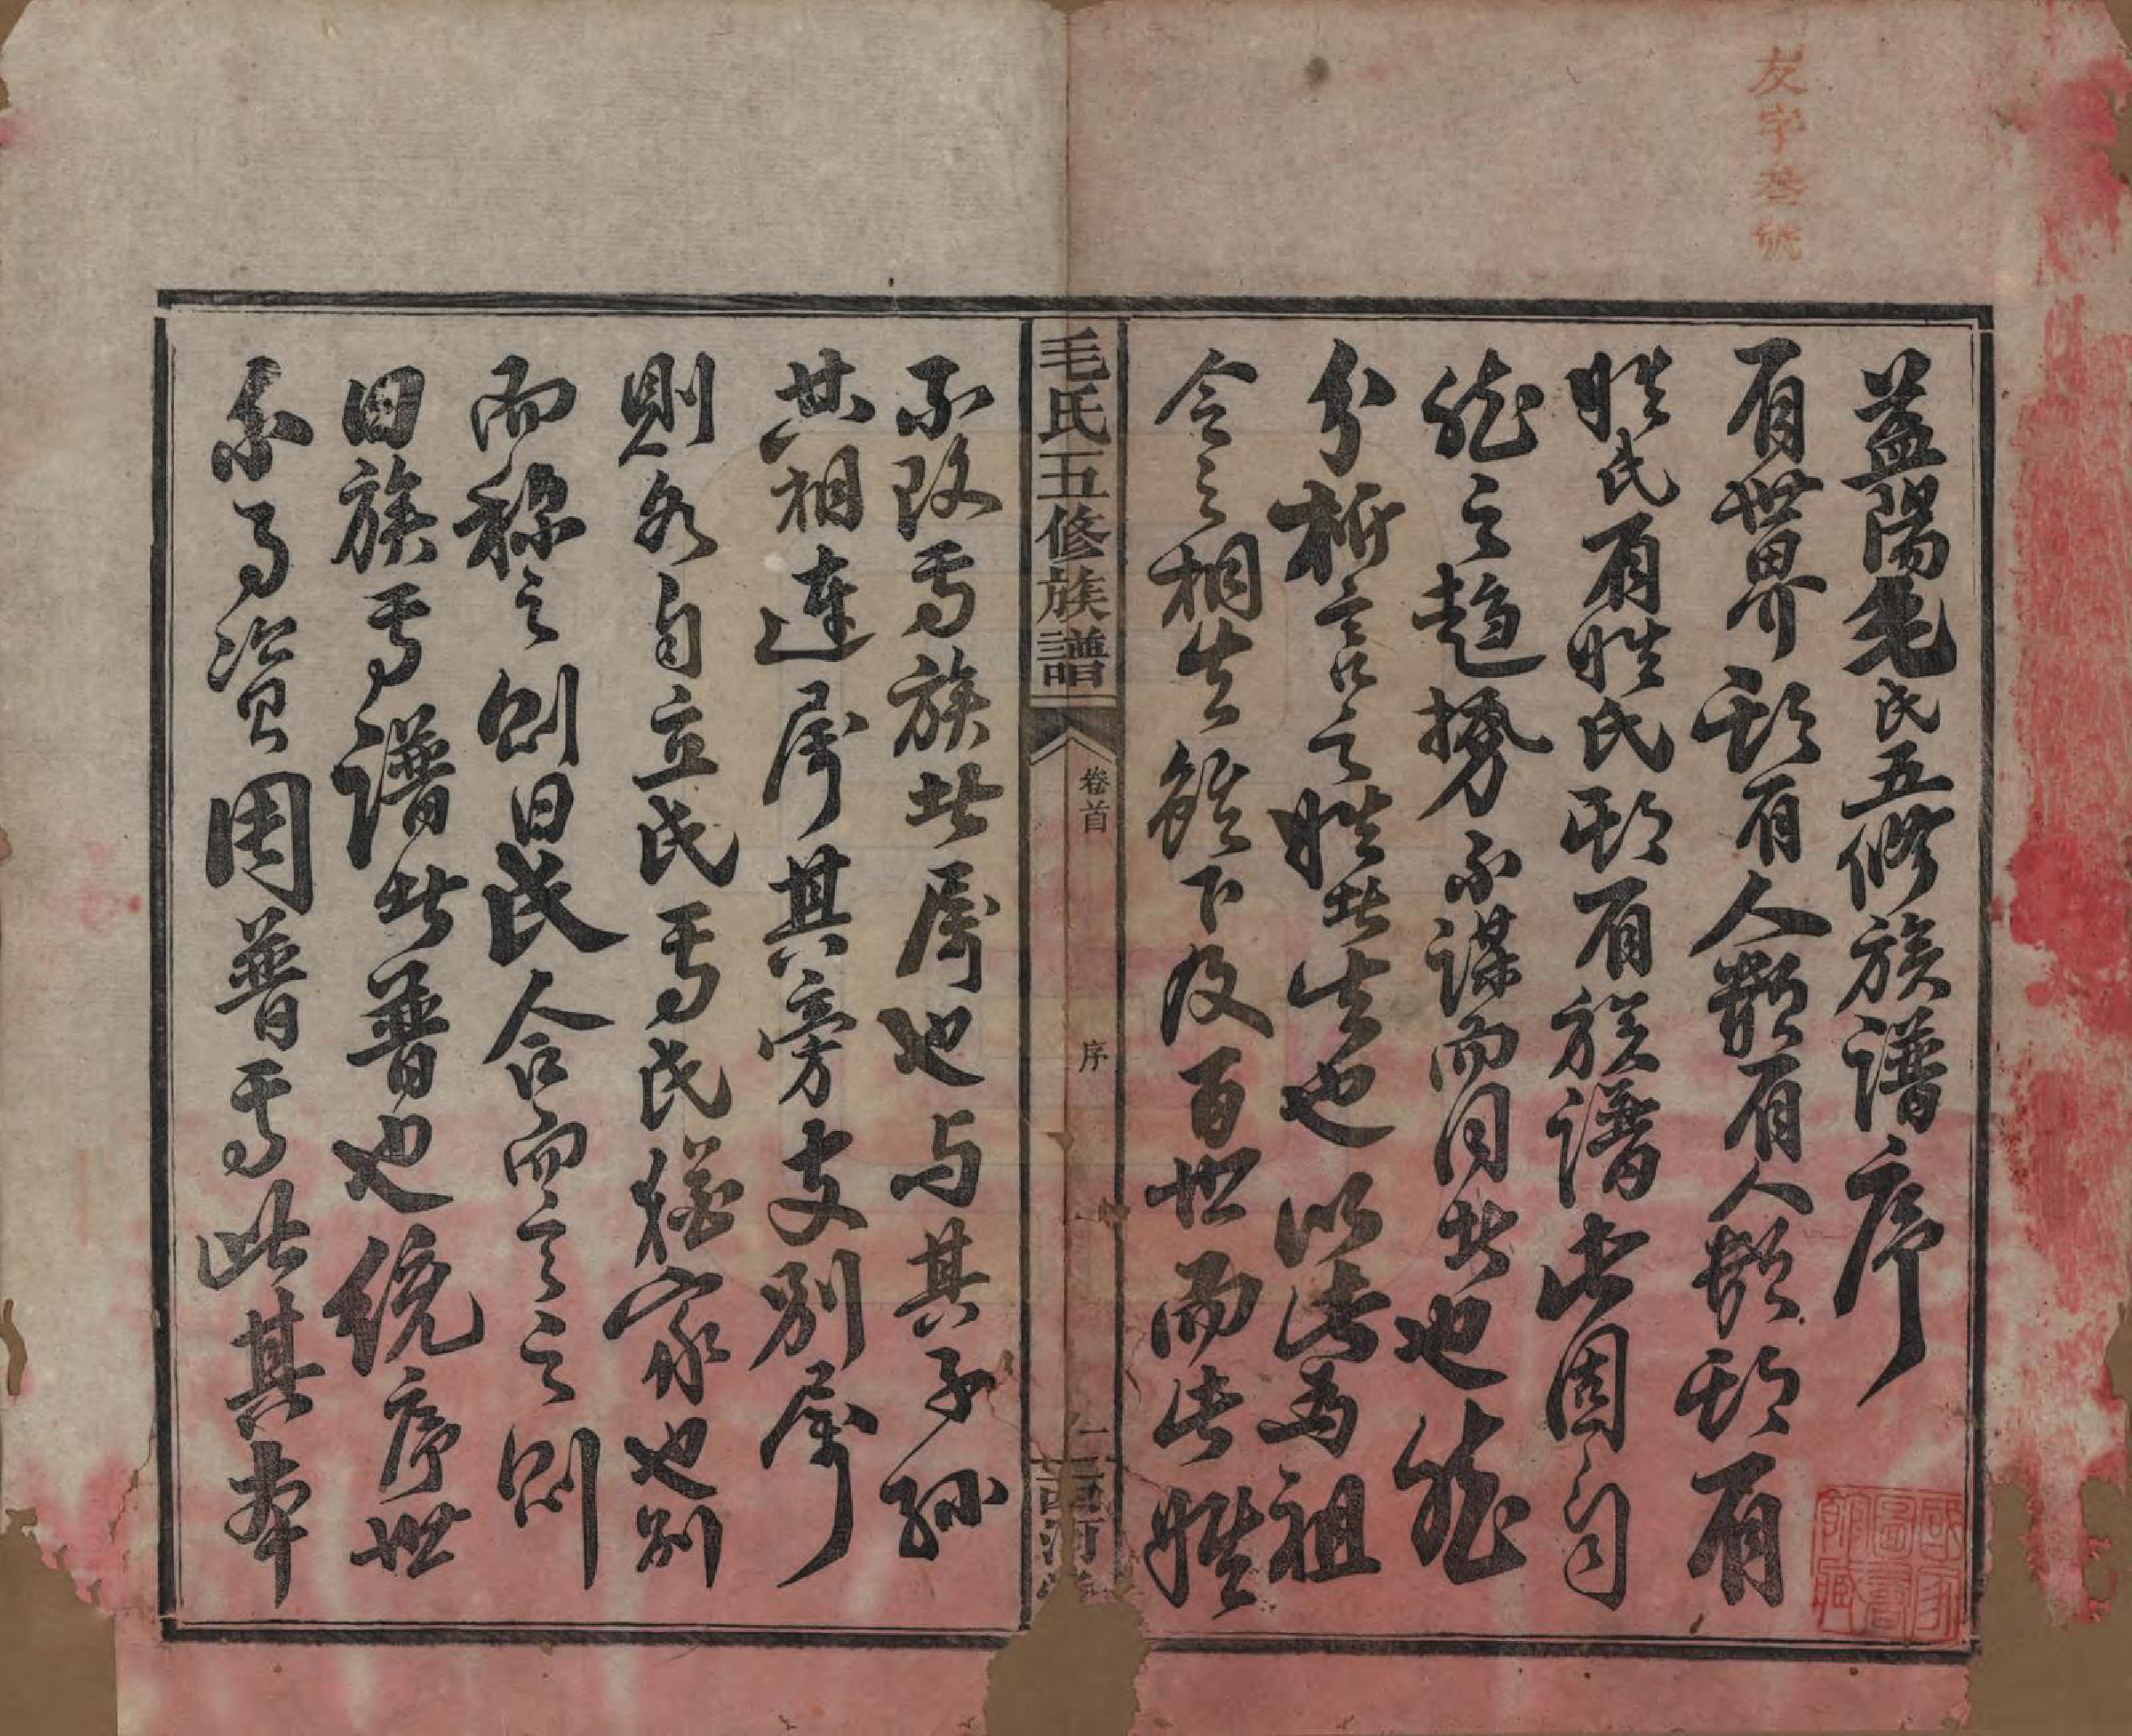 友字叁號
益陽毛氏五修族譜序
有世界斯有人類有人類斯有
姓氏有姓氏斯有族譜此固自
然之趨勢不謀而同者也然
分析言之姓者生也以此為祖
令之相生雖下及百世而此姓
毛氏五修族譜 卷首 序 一 西河
不改焉族者屬也与其子孫
共相連屬其旁支別屬
則各自立氏焉氏猶家也別
而稱之則曰氏合而言之則
曰族焉譜者普也統序世
系事資周普焉此其本
國家圖書館藏